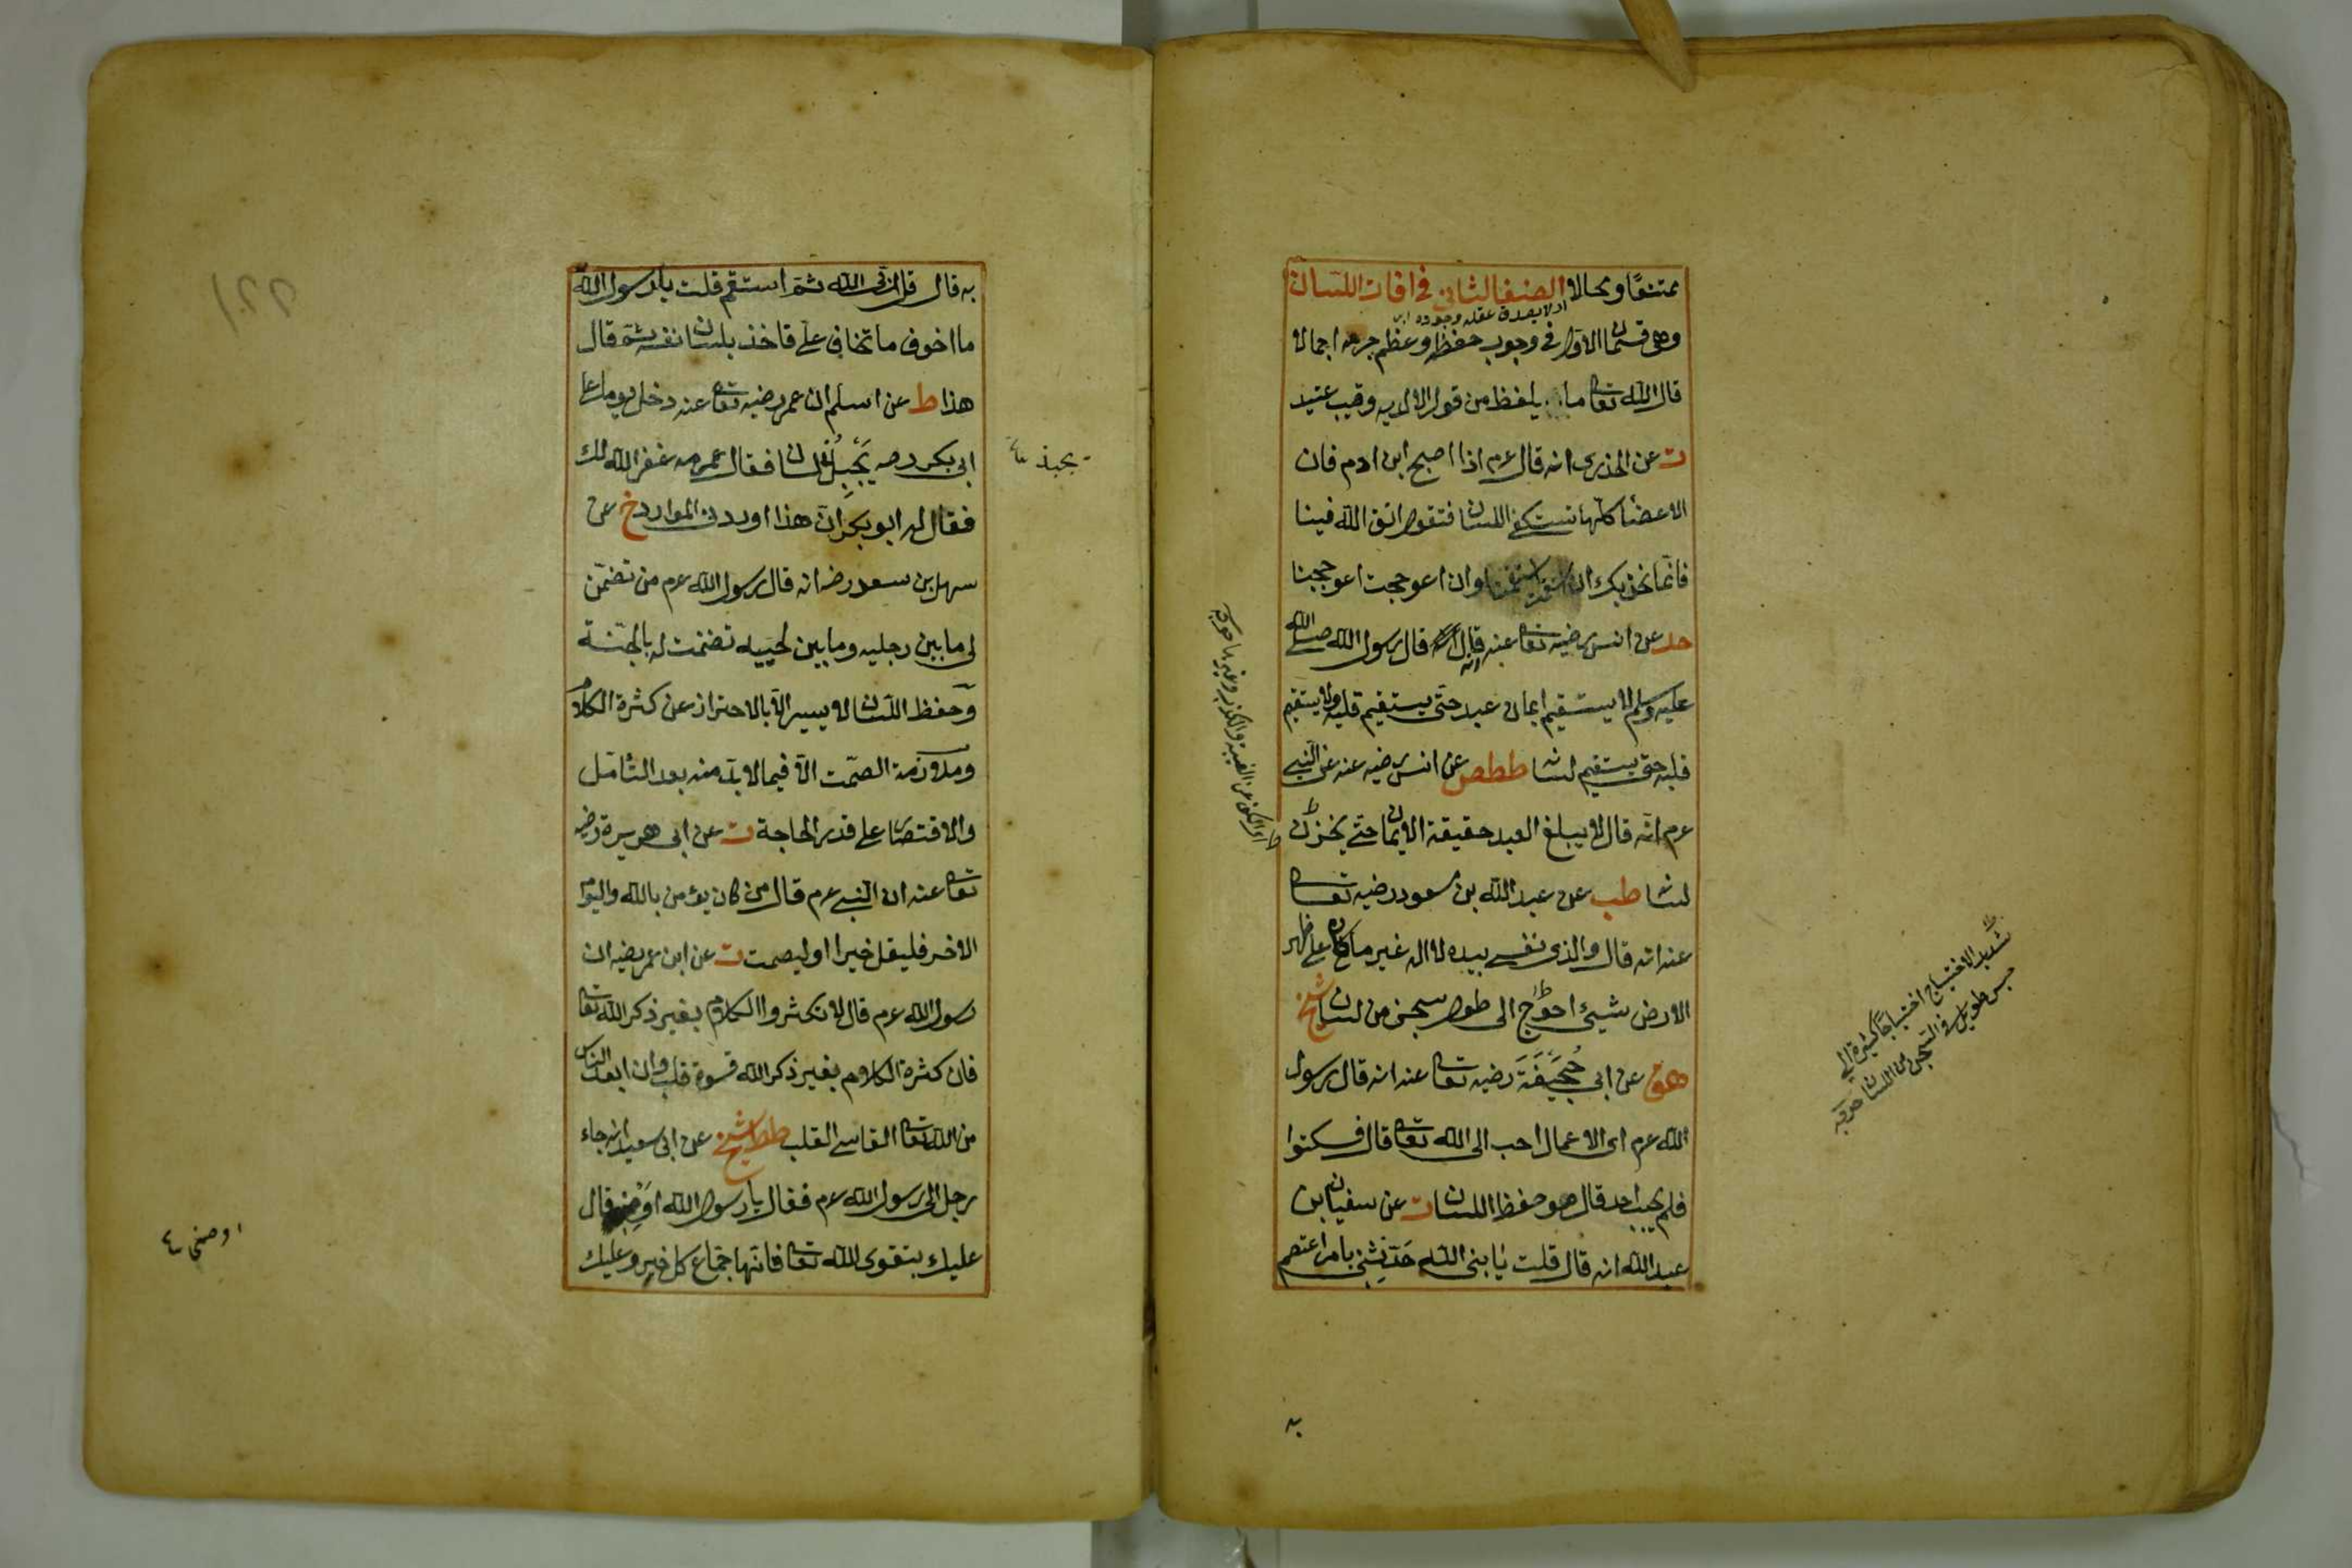 ممتنعًا ومحالا الصنف الثانى فى افات اللسان
وهى قسمان الاول فى وجوب حفظه وعظم جرمه اجمالا
قال الله تعا ما يلفظ من قول الا لديه رقيب عتيد
ت عن الخدرى انه قال عم اذا اصبح ابن ادم فان
الاعضا كلّها تستكفى اللسان فتقول اتق الله فينا
فانما نحن بك ان استقمت استقمنا وان اعوججت اعوججنا
حد عن انس رضيه تعا عنه انه قال قال رسول الله صلى الله
عليه وسلم لا يستقيم ايمان عبد حتى يستقيم قلبه ولا يستقيم
قلبه حتى يستقيم لسانه ططص عن انس رضيه عنه عن النبى
عم انه قال لا يبلغ العبد حقيقة الايمان حتى يخزن
لسانه طب عن عبد الله بن مسعود رضيه تعا
عنه انه قال والذى نفسى بيده لا اله غيره ما كان على ظهر
الارض شيئ احوج الى طول سجن من لسان شيخ
هق عن ابى جُحَيفَةَ رضيه تعا عنه انه قال رسول
الله عم اى الاعمال احب الى الله تعا قال فسكتوا
فلم يجب احد قال هو حفظ اللسان ت عن سفيان بن
عبد الله انه قال قلت يا نبى الله حَدّثنى بامر اعتصم
به
شديد الاحتياج احتياجا كثيرة الى
حبس طويل فى السجن من اللسان
به قال قل ربى الله ثمّ استقم قلت يا رسول الله
ما اخوف ما تخاف علىّ فاخذ بلسان نفسه ثمّ قال
هذا ط عن اسلم ان عمر رضيه تعا عنه دخل يوما على
ابى بكر رضه يَجْبِذُ لسانه فقال عمر مه غفر الله لك
يجبذ
فقال له ابو بكر انّ هذا اوردنى الموارد خ عن
سهل بن سعد رضه انه قال رسول الله عم من تضمّن
لى ما بين رجليه وما بين لحييه تضمنت له بالجنّة
وحفظ اللسان لا ييسر الّا بالاحتراز عن كثرة الكلام
وملازمة الصّمت الّا فيما لا بدّ منه بعد التأمّل
والاقتصار على قدر الحاجة ت عن ابى هريرة رضيه
تعا عنه ان النبى عم قال من كان يؤمن بالله واليوم
الاخر فليقل خيرا او ليصمت ت عن ابن عمر رضيه ان
رسول الله عم قال لا تكثروا الكلام بغير ذكر الله تعا
فان كثرة الكلام بغير ذكر الله قسوة قلب وان ابعد الناس
من الله تعا القاسى القلب ططص شيخ عن ابى سعيد انه جاء
رجل الى رسول الله عم فقال يا رسول الله اَوْصِنى قال
عليك بتقوى الله تعا فانّها جماع كل خير وعليك
اوصنى
221